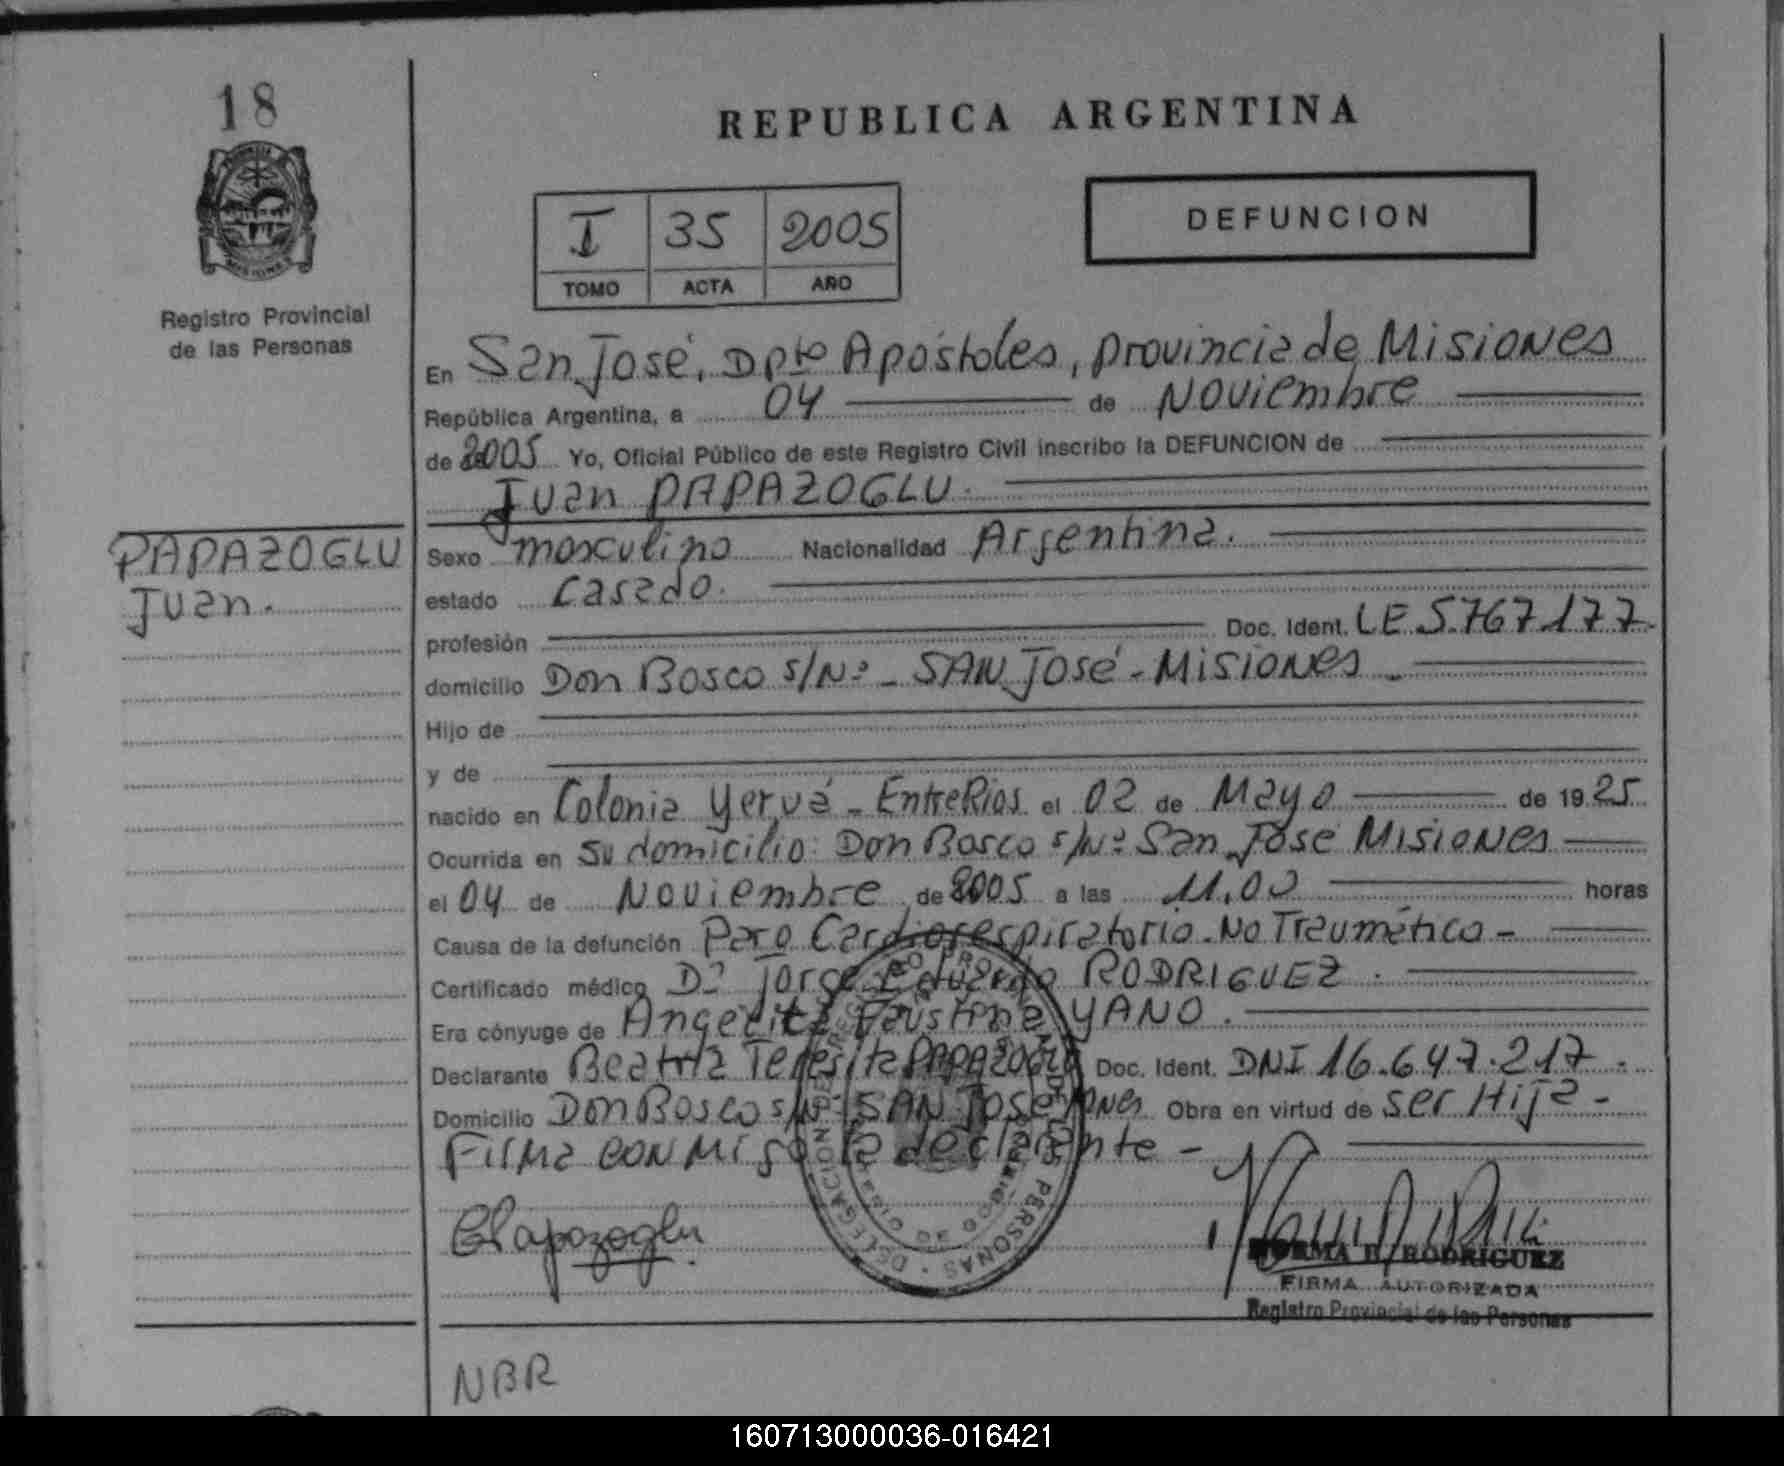 18
REPUBLICA ARGENTINA
I 35 2005
TOMO ACTA AÑO
DEFUNCION
Registro Provincial
de las Personas
En San José, Dpto Apóstoles, provincia de Misiones
República Argentina, a 04 de Noviembre
de 2005 Yo, Oficial Público de este Registro Civil inscribo la DEFUNCION de
Juan PAPAZOGLU.
PAPAZOGLU
Juan.
Sexo masculino Nacionalidad Argentina.
estado casado.
profesión Doc. Ident. LE 5.767.177.
domicilio Don Bosco s/Nº - SAN José - Misiones -
Hijo de
y de
nacido en Colonia Yeruá - Entre Rios el 02 de Mayo de 1925
Ocurrida en su domicilio: Don Bosco s/Nº San José Misiones
el 04 de Noviembre de 2005 a las 11,00 horas
Causa de la defunción Paro Cardiorespiratorio. No Traumético -
Certificado médico Dº Jorge Eduardo RODRIGUEZ.
Era cónyuge de Angelita Faustina YANO.
Declarante Beatriz Teresita PAPAZOGLU Doc. Ident. DNI 16.647.217.
Domicilio Don Bosco s/Nº SAN José Mnes Obra en virtud de ser Hija -
Firma conmigo la declarante -
NORMA B. RODRIGUEZ
FIRMA AUTORIZADA
Registro Provincial de las Personas
NBR
160713000036-016421